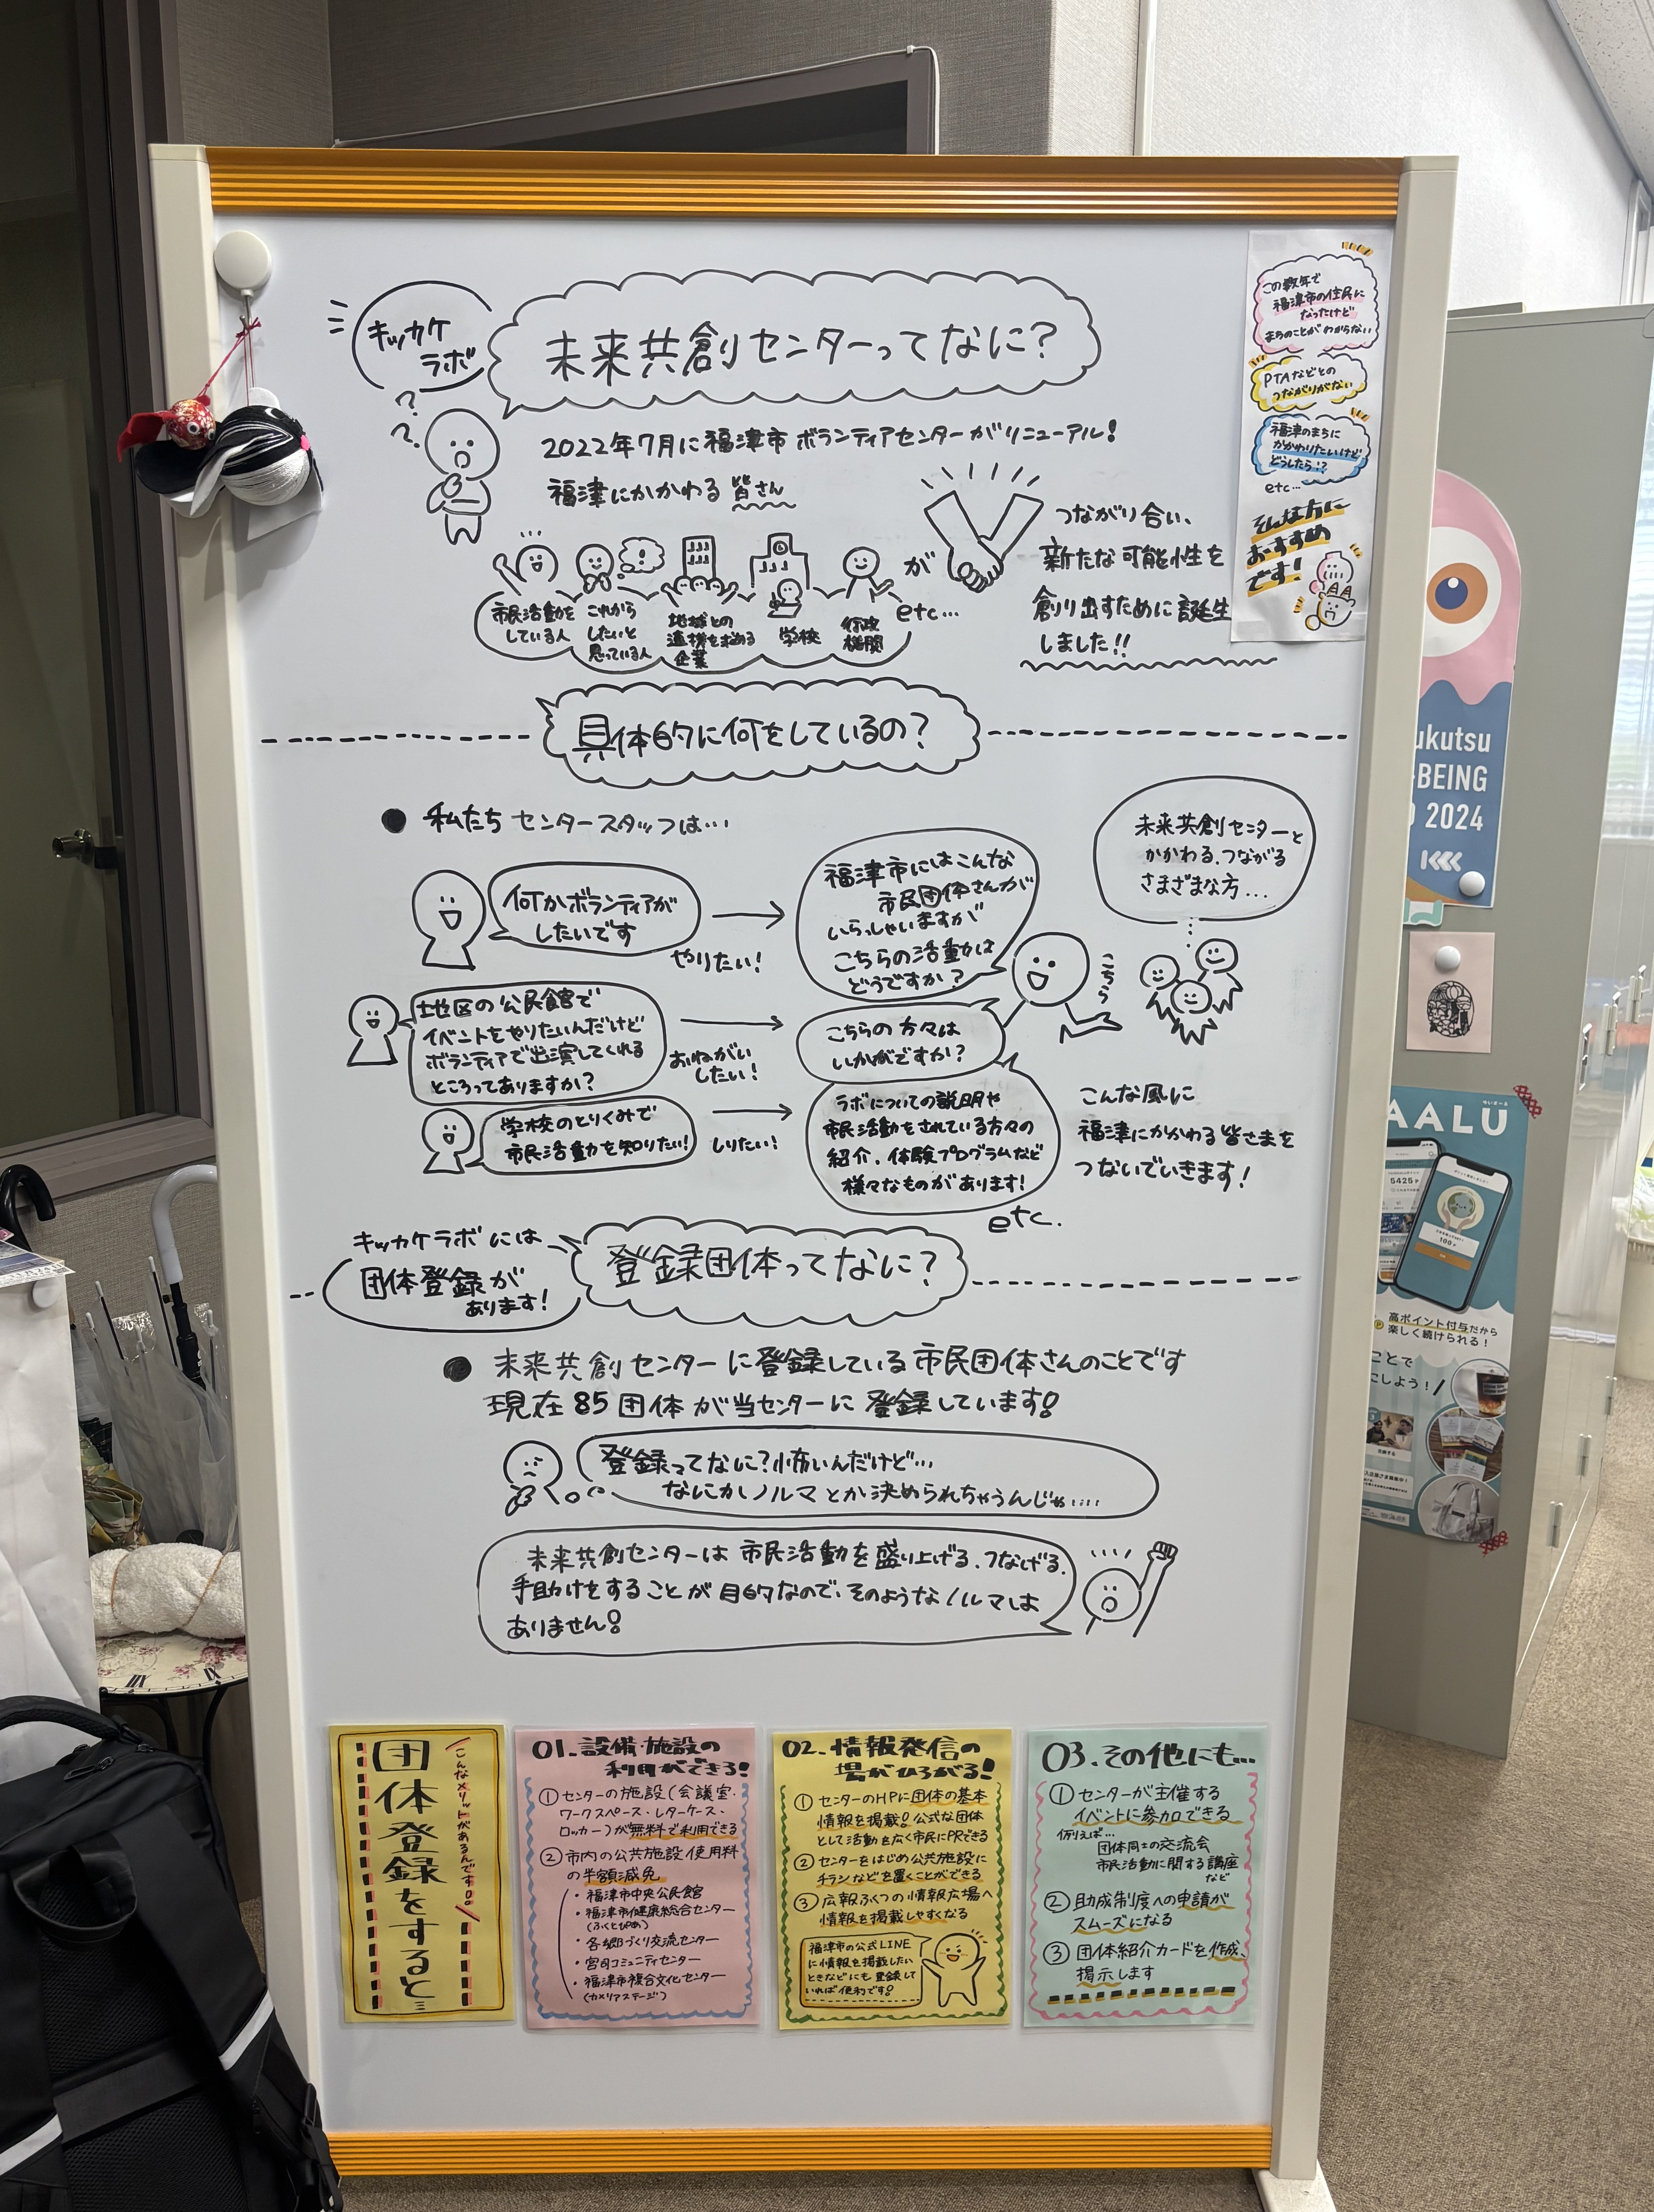 キッカケ
ラボ
未来共創センターってなに?
2022年7月に福津市ボランティアセンターがリニューアル!
福津にかかわる皆さん
市民活動を
している人
これから
したいと
思っている人
地域との
連携を求める
企業
学校
行政
機関
etc…
が
つながり合い、
新たな可能性を
創り出すために誕生
しました!!
この数年で
福津市の住民に
なったけど
まちのことがわからない
PTAなどとの
つながりがない
福津のまちに
かかわりたいけど
どうしたら!?
etc…
そんな方に
おすすめ
です!
具体的に何をしているの?
● 私たちセンタースタッフは…
何かボランティアが
したいです
やりたい!
福津市にはこんな
市民団体さんが
いらっしゃいますが
こちらの活動は
どうですか?
未来共創センターと
かかわる、つながる
さまざまな方…
こちら
地区の公民館で
イベントをやりたいんだけど
ボランティアで出演してくれる
ところってありますか?
おねがい
したい!
こちらの方々は
いかがですか?
学校のとりくみで
市民活動を知りたい!
しりたい!
ラボについての説明や
市民活動をされている方々の
紹介、体験プログラムなど
様々なものがあります!
etc.
こんな風に
福津にかかわる皆さまを
つないでいきます!
キッカケラボには
団体登録が
あります!
登録団体ってなに?
● 未来共創センターに登録している市民団体さんのことです
現在85団体が当センターに登録しています!
登録ってなに?怖いんだけど…
なにかノルマとか決められちゃうんじゃ….
未来共創センターは市民活動を盛り上げる、つなげる、
手助けをすることが目的なので、そのようなノルマは
ありません!
団体登録をすると…
こんなメリットがあるんです!
01.設備・施設の
利用ができる!
①センターの施設(会議室・
ワークスペース・レターケース・
ロッカー)が無料で利用できる
②市内の公共施設使用料
の半額減免
・福津市中央公民館
・福津市健康総合センター
(ふくとぴあ)
・各郷づくり交流センター
・宮司コミュニティセンター
・福津市複合文化センター
(カメリアステージ)
02.情報発信の
場がひろがる!
①センターのHPに団体の基本
情報を掲載!公式な団体
として活動を広く市民にPRできる
②センターをはじめ公共施設に
チラシなどを置くことができる
③広報ふくつの情報広場へ
情報を掲載しやすくなる
福津市の公式LINE
に情報を掲載したい
ときなどにも登録して
いれば便利です!
03.その他にも…
①センターが主催する
イベントに参加できる
例えば…
団体同士の交流会
市民活動に関する講座
など
②助成制度への申請が
スムーズになる
③団体紹介カードを作成、
掲示します
ukutsu
-BEING
2024
AALU
5425
100
高ポイント付与だから
楽しく続けられる!
ことで
こしよう!